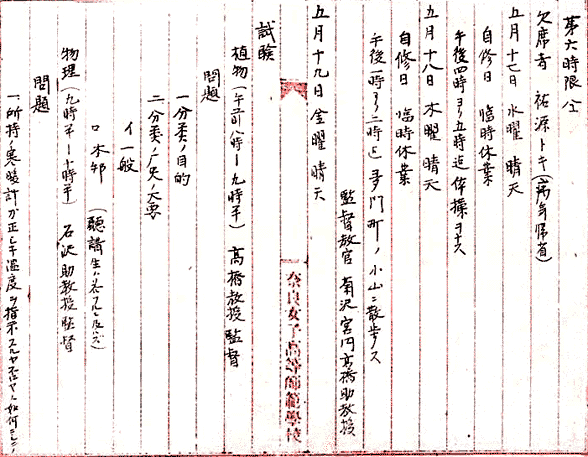 第六時限ハ仝
欠席者 祐源トキ(病気帰省)
五月十七日 水曜 晴天
自修日 臨時休業
午後四時ヨリ五時迄体操ヲナス
五月十八日 木曜 晴天
自修日 臨時休業
午後一時ヨリ三時迄多門町ノ小山ニ散歩ス
監督教官 南沢宮内高橋助教授
五月十九日 金曜 晴天
奈良女子高等師範學校
試験
植物(午前八時ー九時半) 高橋教授監督
問題
一分类ノ目的
二分类ノ歴史ノ大要
イ一般
ロ本邦 (聴講生ハ答フルニ及バズ)
物理(九時半ー十時半) 石沢助教授監督
問題
一所持ノ寒暖計ガ正シキ温度ヲ指示スルヤ否ヤハ如何ニシテ